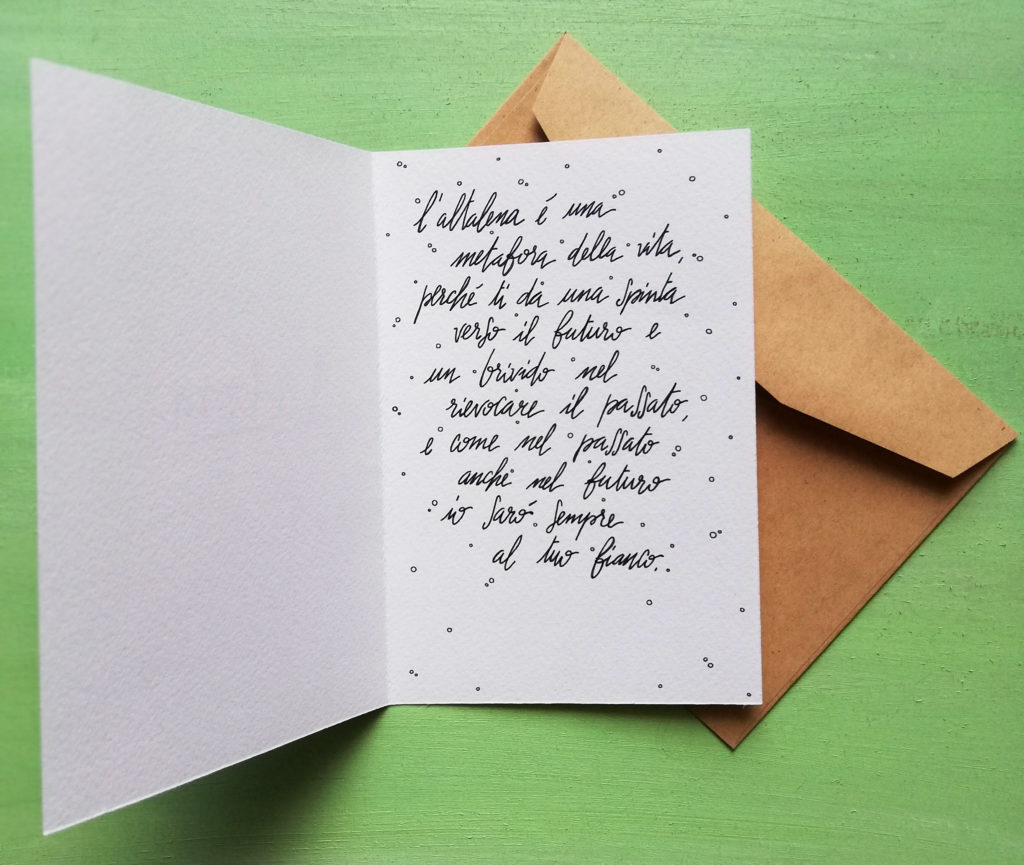 l'altalena é una
metafora della vita,
perché ti dà una spinta
verso il futuro e
un brivido nel
rievocare il passato,
e come nel passato
anche nel futuro
io saró sempre
al tuo fianco.